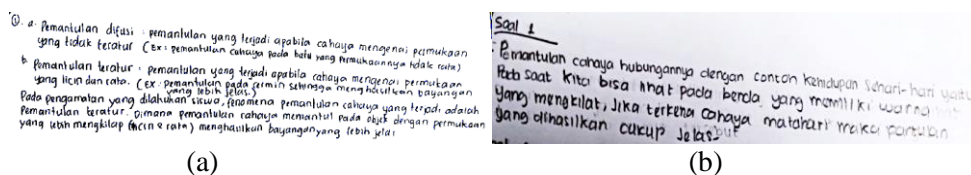 ①. a. Pemantulan difusi : pemantulan yang terjadi apabila cahaya mengenai permukaan
yang tidak teratur (Ex : pemantulan cahaya pada batu yang permukaannya tidak rata)
b. Pemantulan teratur : pemantulan yang terjadi apabila cahaya mengenai permukaan
yang licin dan rata. (Ex : pemantulan pada cermin sehingga menghasilkan bayangan
yang lebih jelas.)
Pada pengamatan yang dilakukan siswa, fenomena pemantulan cahaya yang terjadi adalah
Pemantulan teratur. Dimana pemantulan cahaya memantul pada objek dengan permukaan
yang lebih mengkilap (licin & rata) menghasilkan bayangan yang lebih jelas
(a)
Soal 1
Pemantulan cahaya hubungannya dengan contoh kehidupan sehari-hari yaitu
Pada saat kita bisa lihat pada benda yang memiliki warna
yang mengkilat, Jika terkena cahaya matahari maka
yang dihasilkan cukup jelas
(b)